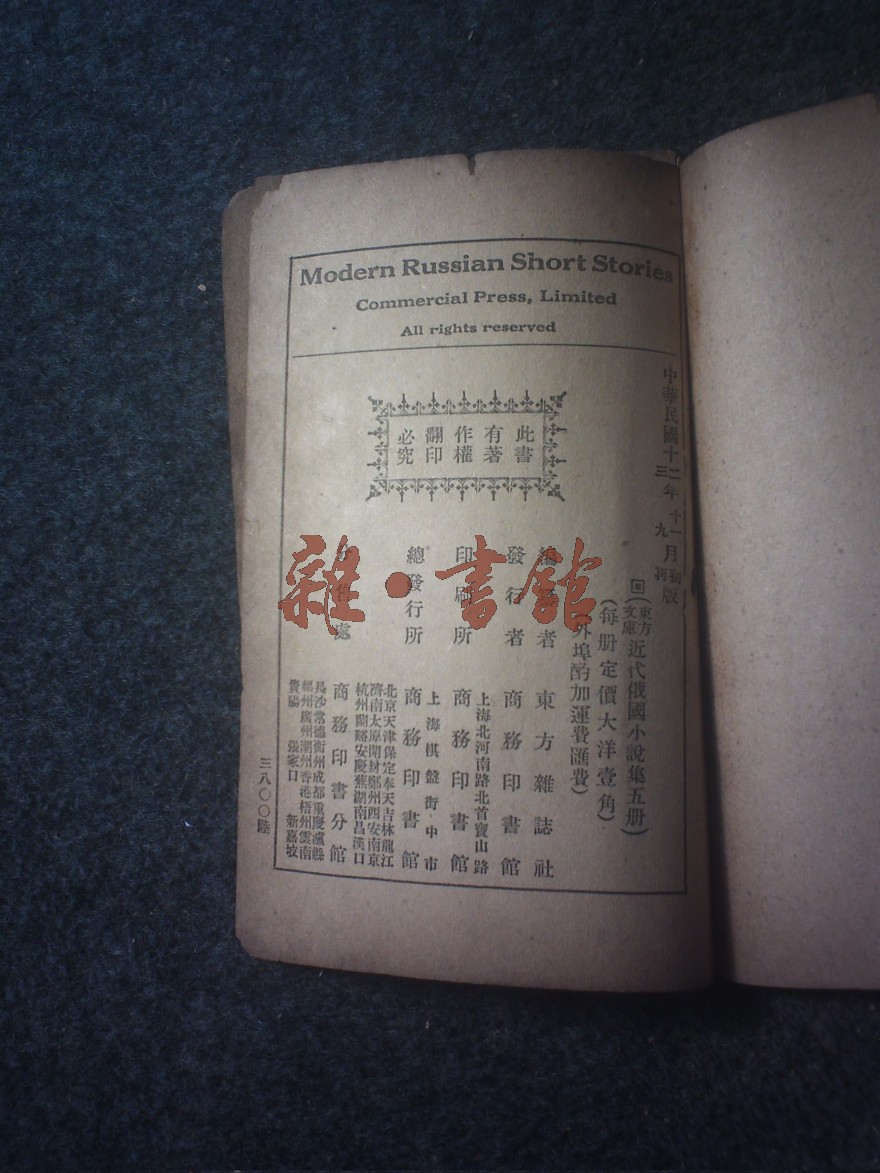 Modern Russian Short Stories
Commercial Press, Limited
All rights reserved
此書
有著
作權
翻印
必究
中華民國十二年十一月初版
三 九 再
東方
文庫
近代俄國小說集五册
(每册定價大洋壹角)
(外埠酌加運費匯費)
編 者 東方雜誌社
發行者 商務印書館
上海北河南路北首寶山路
印刷所 商務印書館
上海棋盤街中市
總發行所 商務印書館
北京天津保定奉天吉林龍江
濟南太原開封鄭州西安南京
杭州蘭谿安慶蕪湖南昌漢口
分 處 商務印書分館
長沙常德衡州成都重慶瀘縣
福州廣州潮州香港梧州雲南
貴陽 張家口 新嘉坡
三八〇〇陸
雜·書館